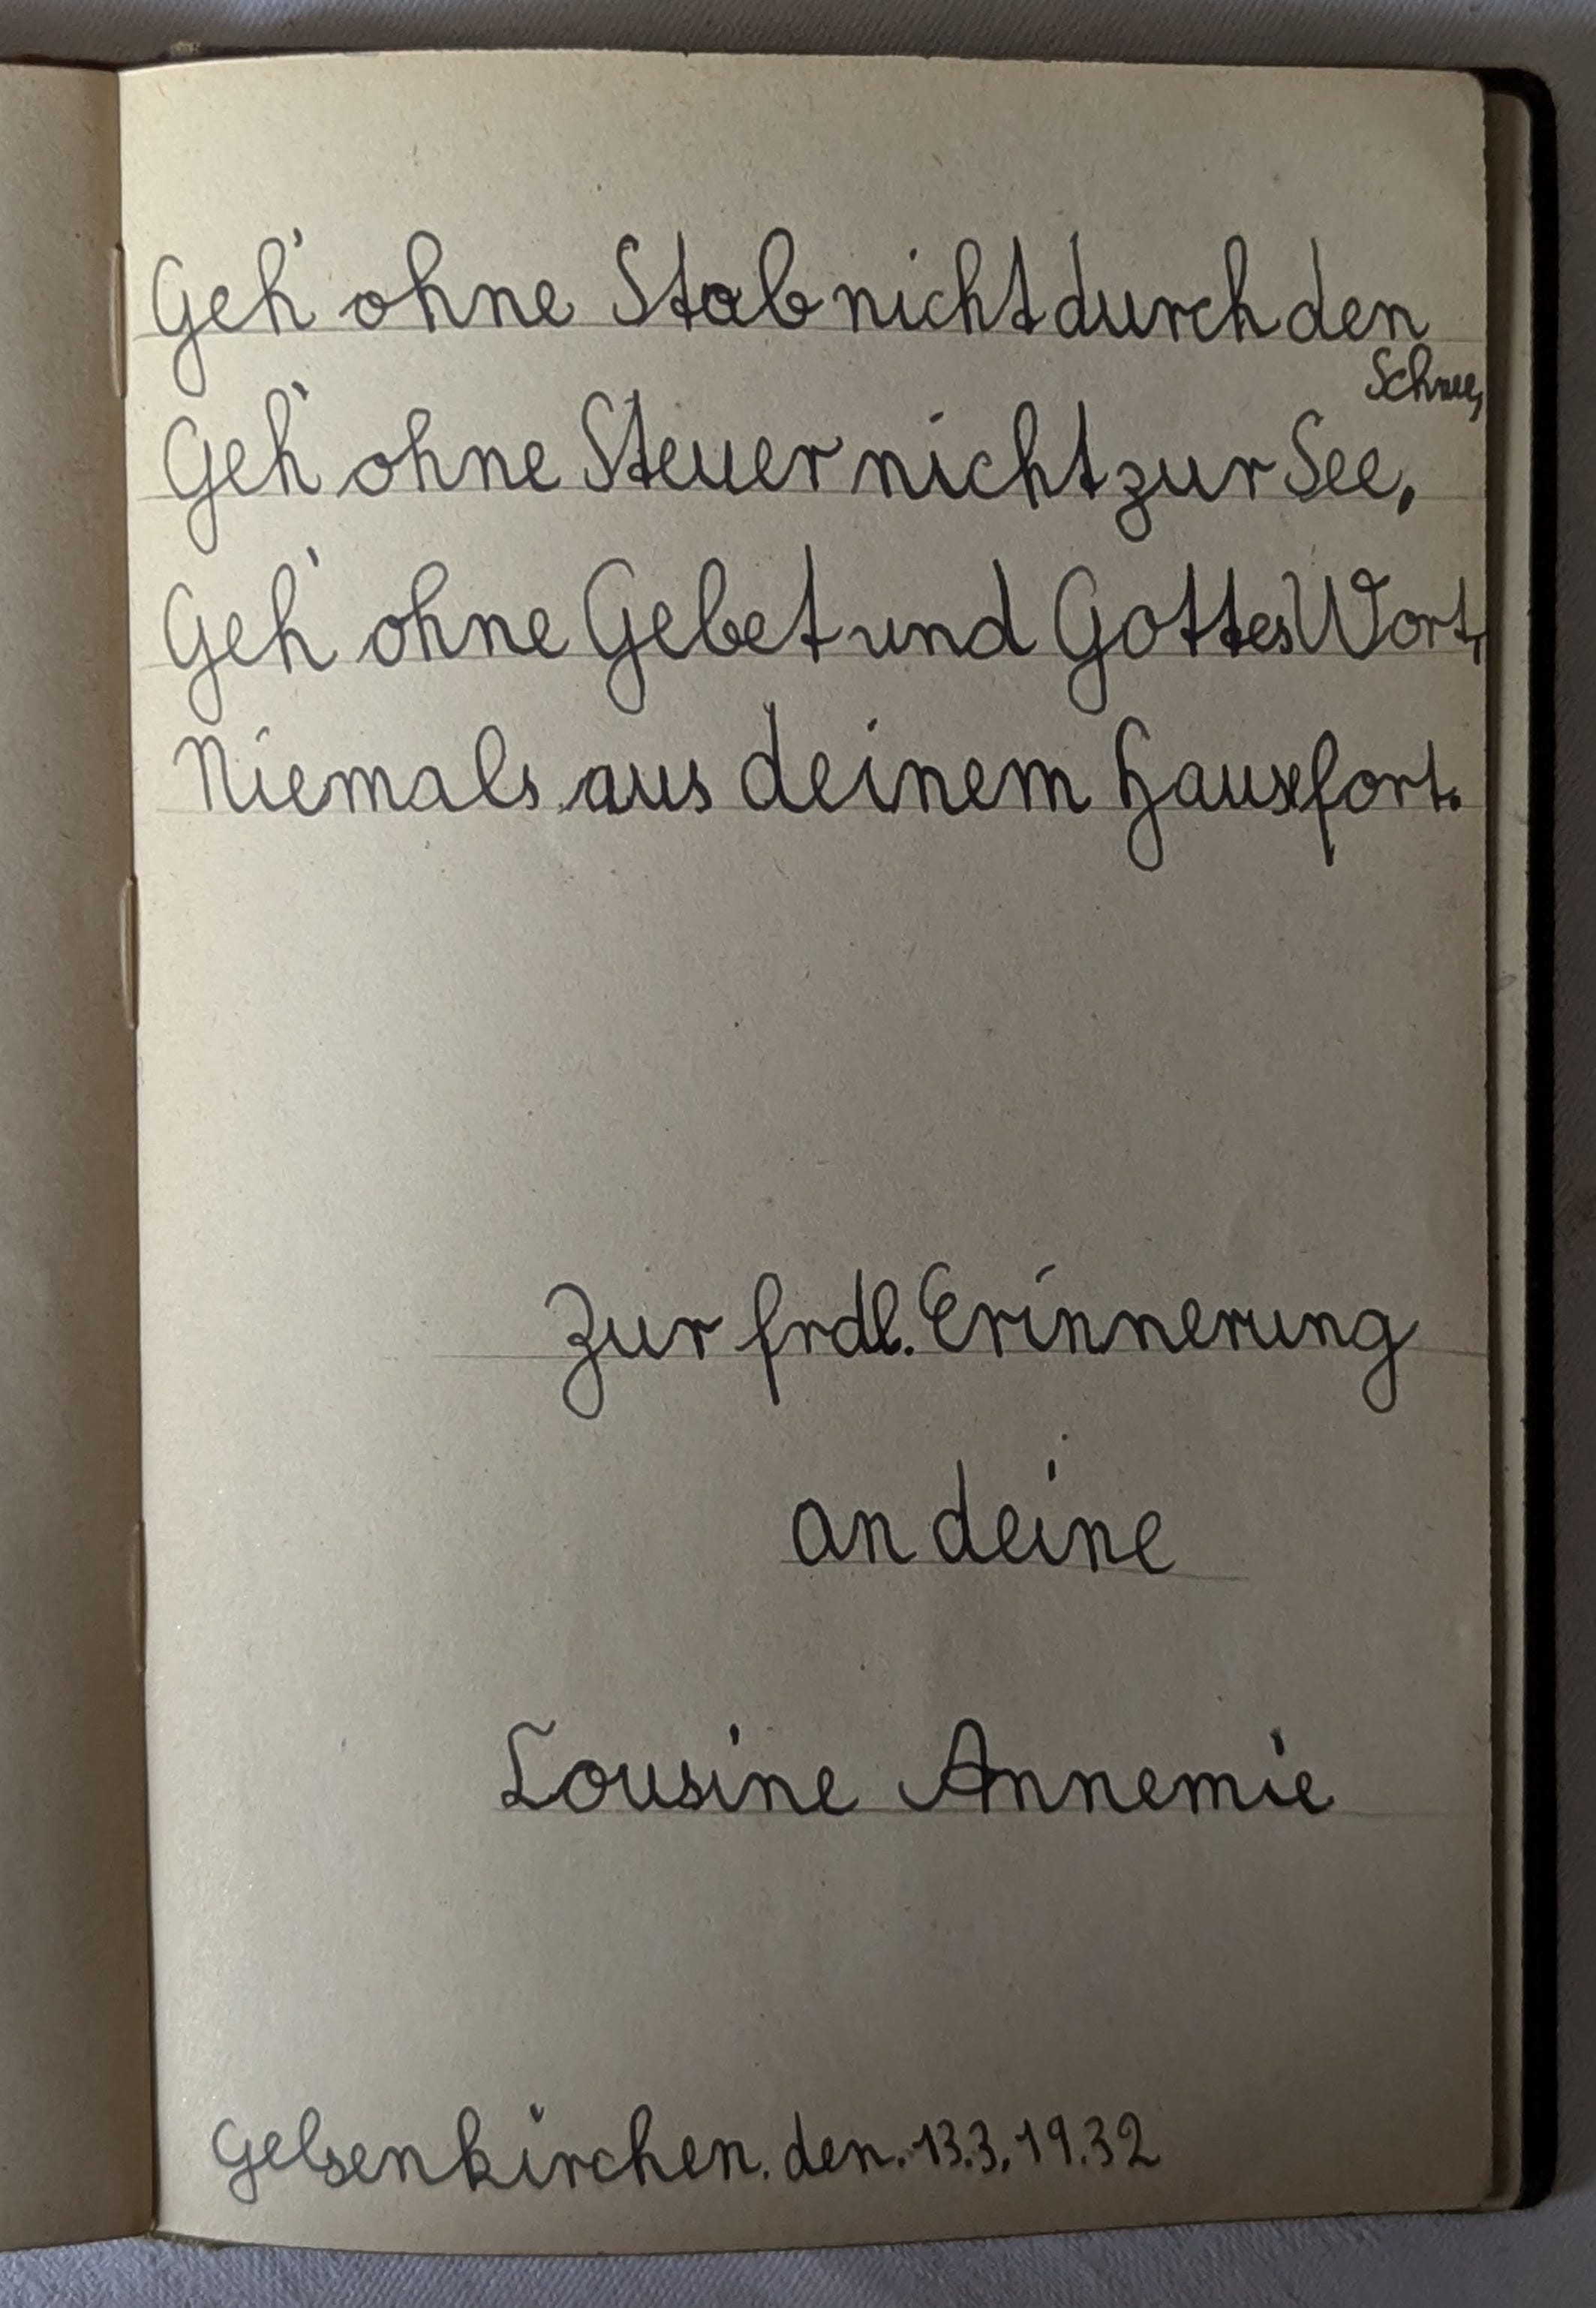 Geh' ohne Stab nicht durch den
Schnee,
Geh' ohne Steuer nicht zur See,
Geh' ohne Gebet und Gottes Wort,
Niemals aus deinem Hause fort.
Zur frdl. Erinnerung
an deine
Cousine Annemie
Gelsenkirchen. den. 13.3.19.32